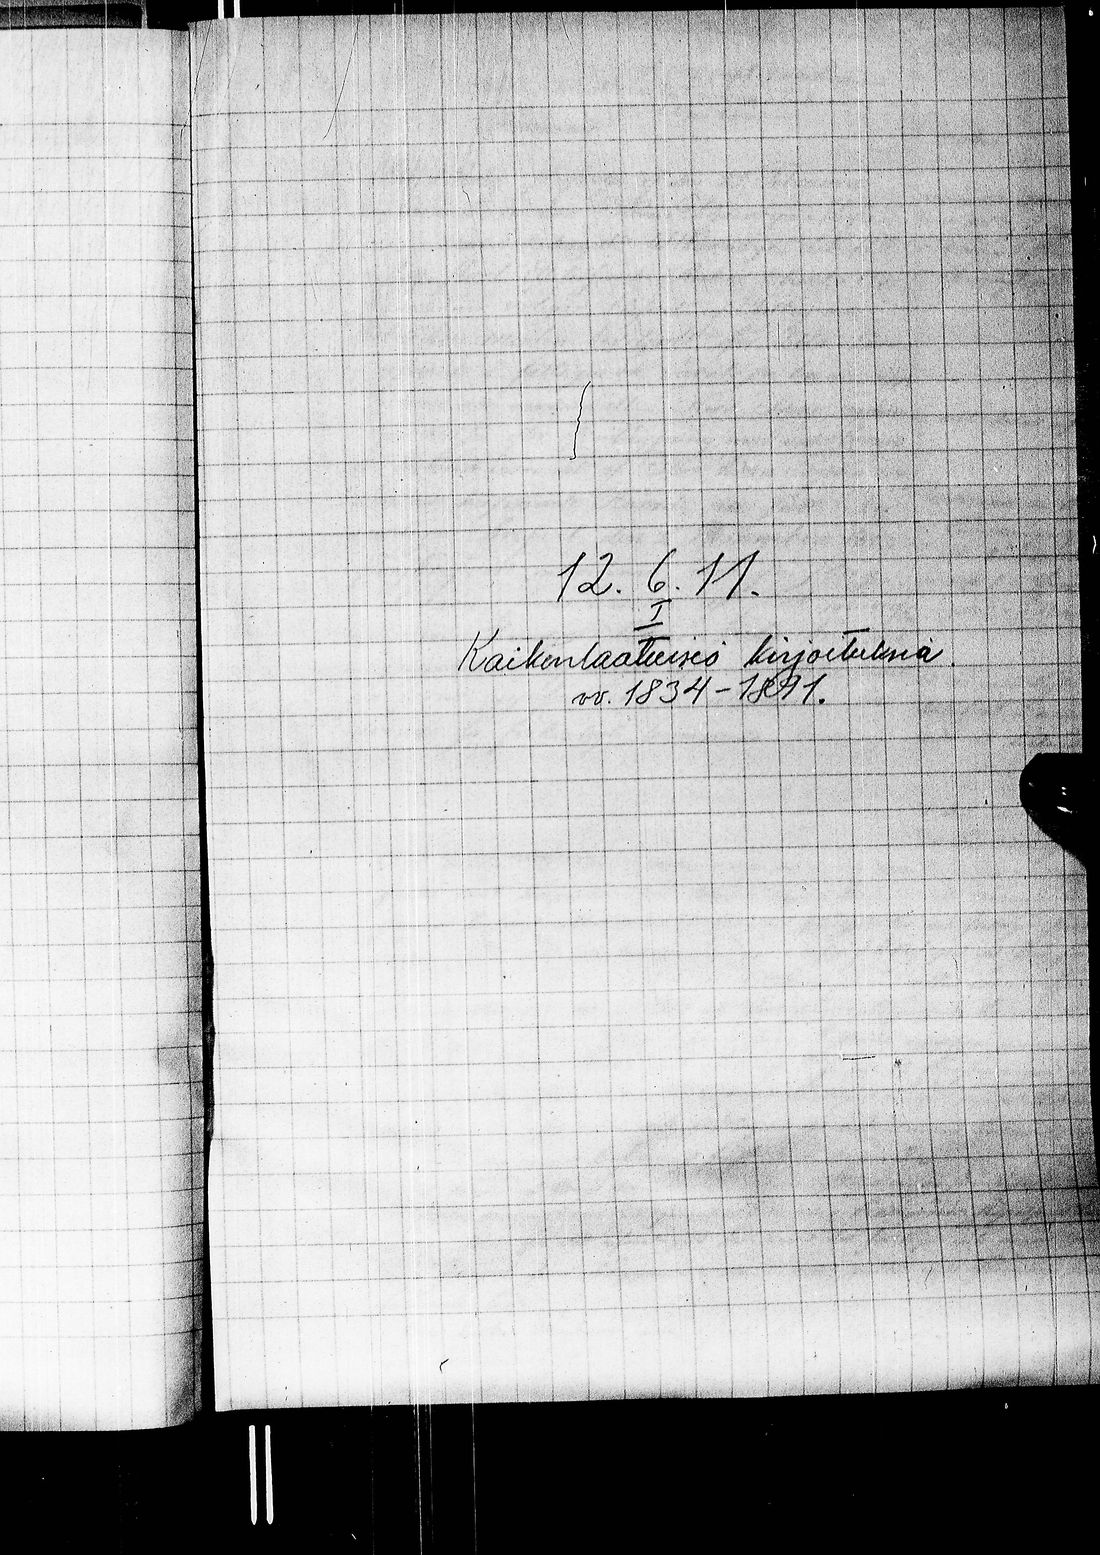 12. 6. 11.
I
Kaikenlaatuisia kirjoituksia
vv. 1834-1891.